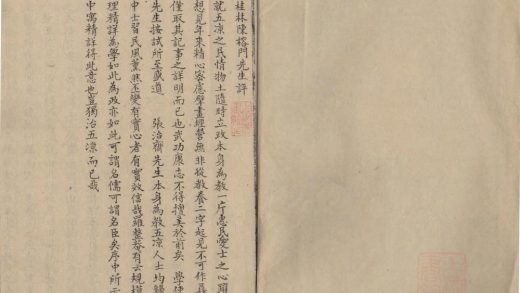 桂林陳榕門先生評
就五凉之民情物土隨時立政本身為教一片惠民愛士之心顯
想見年來精心密慮擘畫經營無非從教養二字起見不可作具
僅取其記事之詳明而已也武功康志不得擅美於前矣 學使
先生按試所至盛道 張治齋先生本身為教五凉人士均
中士習民風薰烝丕變有實心者有實效信哉羅整菴有云規模
理精詳為學如此為政亦如此可謂名儒可謂名臣矣序中所云
中寓精詳得此意也豈獨治五凉而已哉